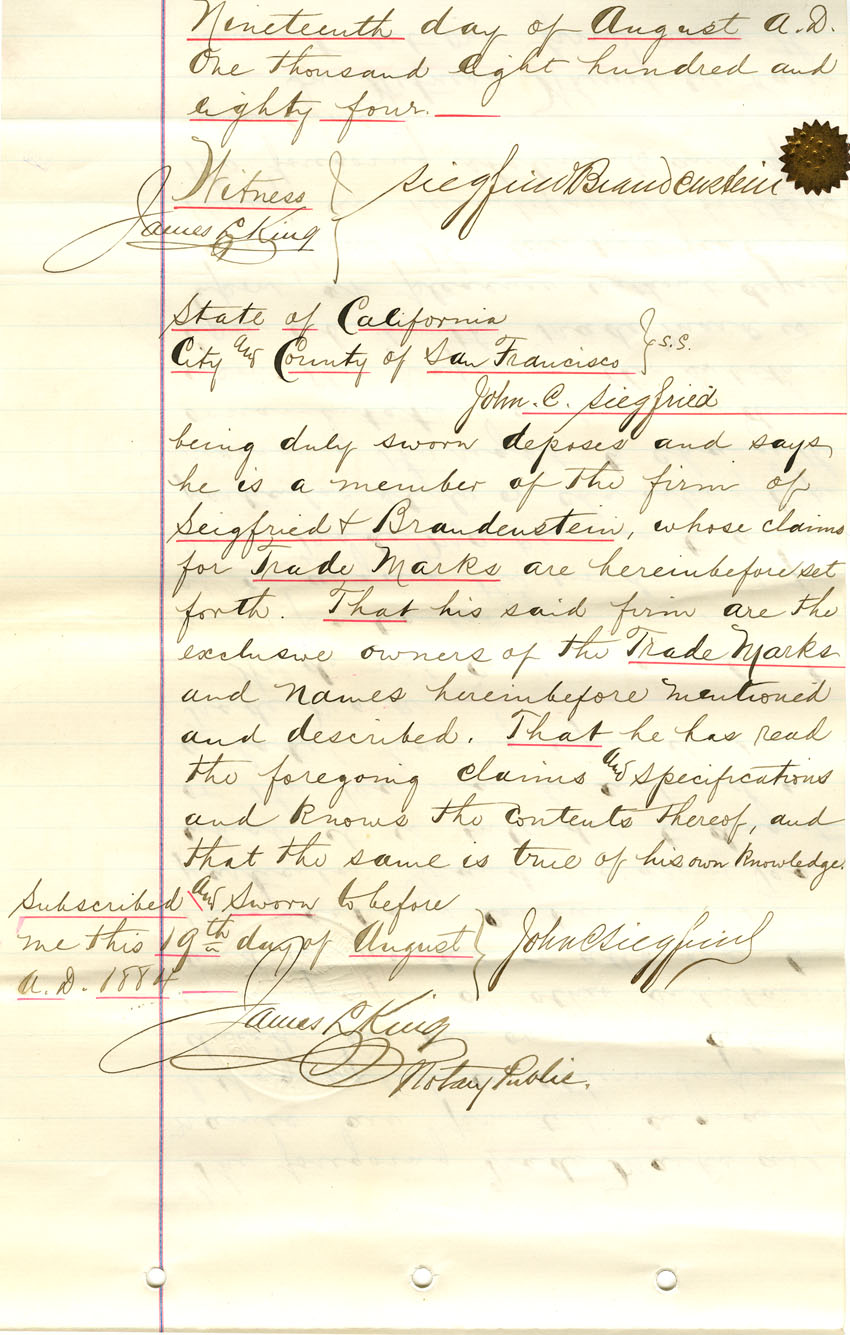 Nineteenth day of August A.D.
One thousand eight hundred and
eighty four.
Witness } Siegfried Brandenstein
James L King
State of California
City and County of San Francisco } S.S.
John. C. Siegfried
being duly sworn deposes and says,
he is a member of the firm of
Seigfried & Brandenstein, whose claims
for Trade Marks are hereinbefore set
forth. That his said firm are the
exclusive owners of the Trade Marks
and Names hereinbefore mentioned
and described. That he has read
the foregoing claims and specifications
and knows the contents thereof, and
that the same is true of his own knowledge.
Subscribed and Sworn to before
me this 19th day of August } John C Siegfried
A.D. 1884
James L King
Notary Public.